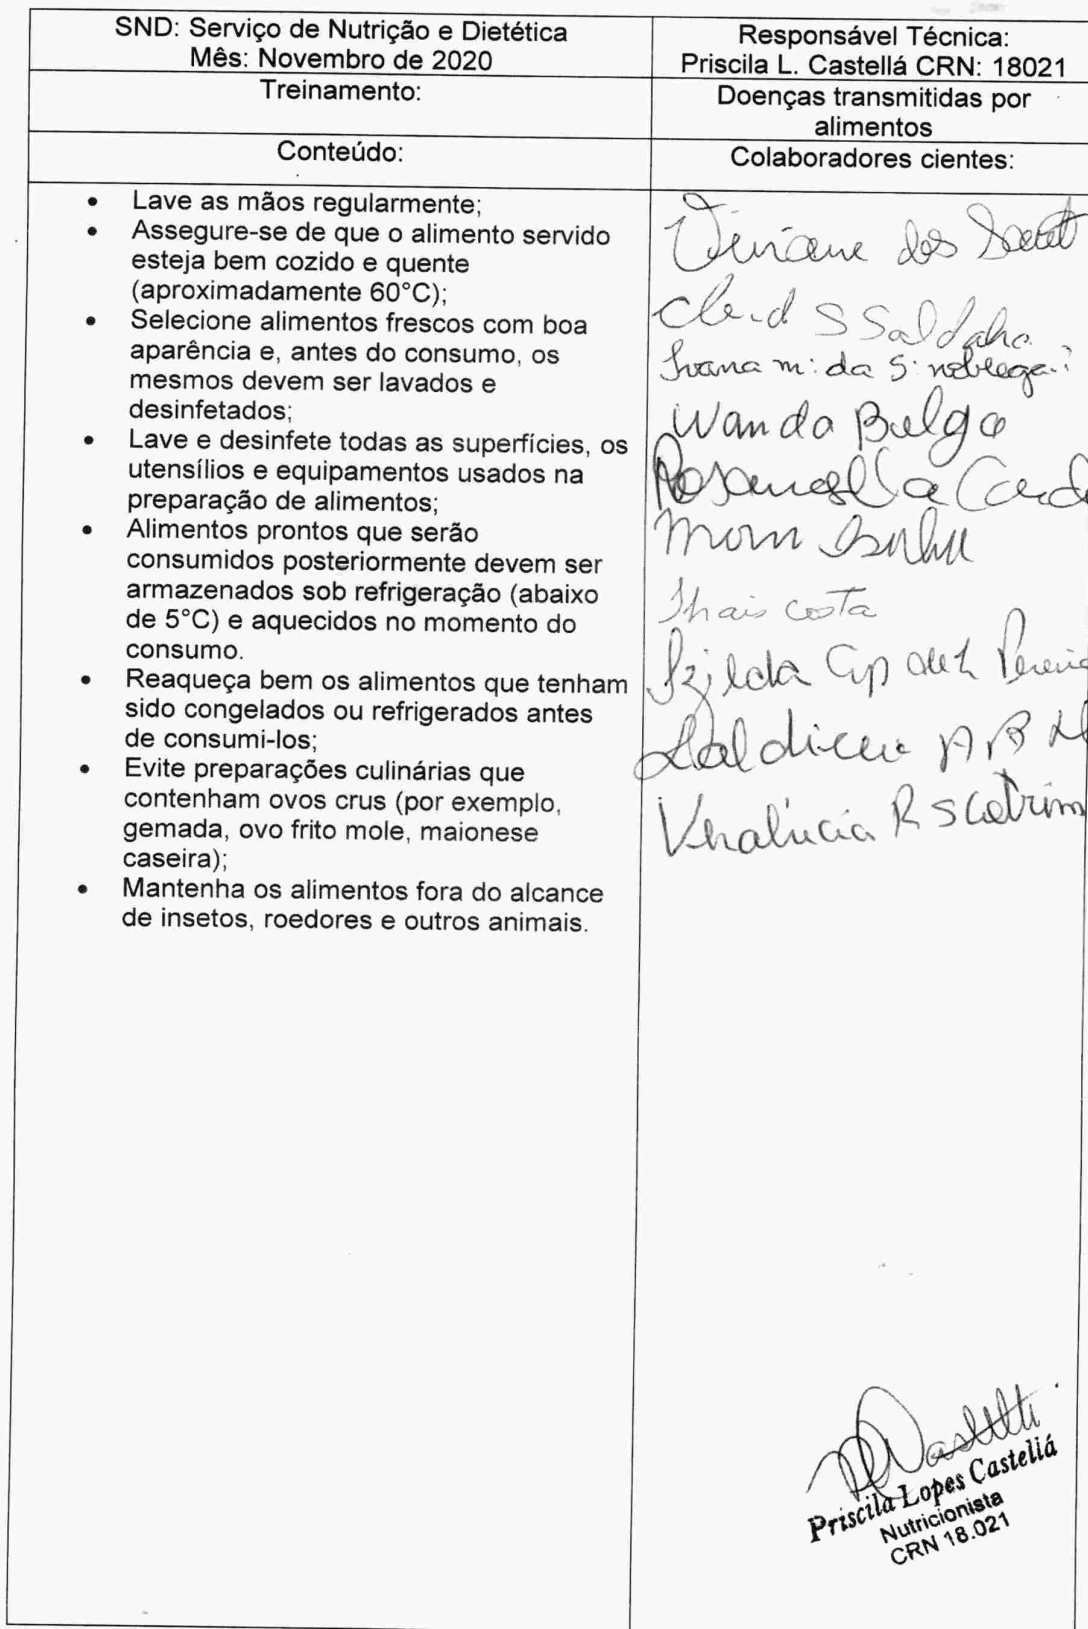 SND: Serviço de Nutrição e Dietética
Mês: Novembro de 2020
Responsável Técnica:
Priscila L. Castellá CRN: 18021
Treinamento:
Doenças transmitidas por
alimentos
Conteúdo:
Colaboradores cientes:
• Lave as mãos regularmente;
• Assegure-se de que o alimento servido
esteja bem cozido e quente
(aproximadamente 60°C);
• Selecione alimentos frescos com boa
aparência e, antes do consumo, os
mesmos devem ser lavados e
desinfetados;
• Lave e desinfete todas as superfícies, os
utensílios e equipamentos usados na
preparação de alimentos;
• Alimentos prontos que serão
consumidos posteriormente devem ser
armazenados sob refrigeração (abaixo
de 5°C) e aquecidos no momento do
consumo.
• Reaqueça bem os alimentos que tenham
sido congelados ou refrigerados antes
de consumi-los;
• Evite preparações culinárias que
contenham ovos crus (por exemplo,
gemada, ovo frito mole, maionese
caseira);
• Mantenha os alimentos fora do alcance
de insetos, roedores e outros animais.
dos
S Saldaha
Ivana m. da S. nobrega
Wanda
Thais costa
Izilda
Priscila Lopes Castellá
Nutricionista
CRN 18.021